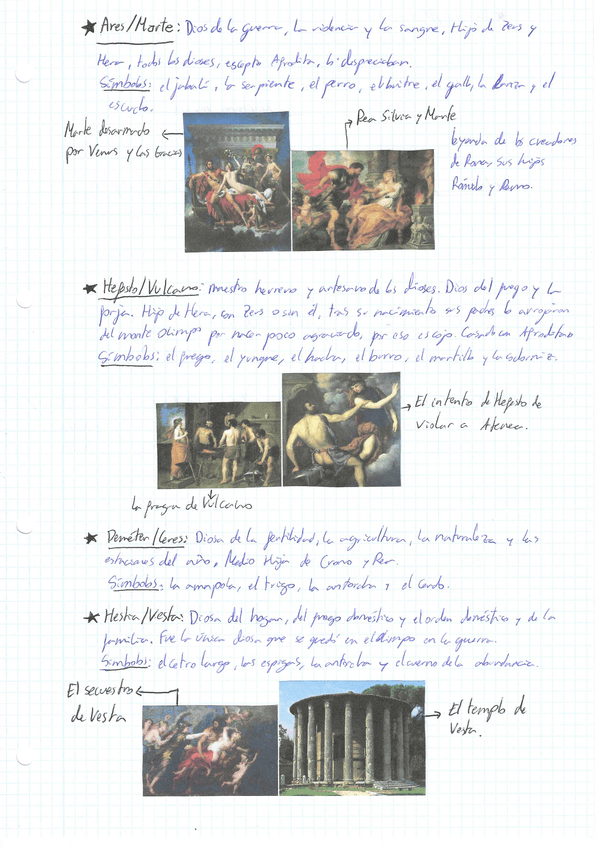 ★ Ares/Marte: Dios de la guerra, la violencia y la sangre, Hijo de Zeus y
Hera, todos los dioses, excepto Afrodita, lo despreciaban.
Símbolos: el jabalí, la serpiente, el perro, el buitre, el gallo, la lanza y el
escudo.
Marte desarmado
por Venus y las Gracias
Rea Silvia y Marte
leyenda de los creadores
de Roma, sus hijos
Rómulo y Remo.
★ Hefesto/Vulcano: maestro herrero y artesano de los dioses. Dios del fuego y la
forja. Hijo de Hera, con Zeus o sin él, tras su nacimiento sus padres lo arrojaron
del monte Olimpo por nacer poco agraciado, por eso es cojo. Casado con Afrodita
Símbolos: el fuego, el yunque, el hacha, el burro, el martillo y la codorniz.
El intento de Hefesto de
violar a Atenea.
La fragua de Vulcano
★ Deméter/Ceres: Diosa de la fertilidad, la agricultura, la naturaleza y las
estaciones del año, Hija de Crono y Rea.
Símbolos: la amapola, el trigo, la antorcha y el cerdo.
★ Hestia/Vesta: Diosa del hogar, del fuego doméstico y el orden doméstico y de la
familia. Fue la única diosa que se quedó en el Olimpo en la guerra.
Símbolo: el cetro largo, las espigas, la antorcha y el cuerno de la abundancia.
El secuestro
de Vesta
El templo de
Vesta.